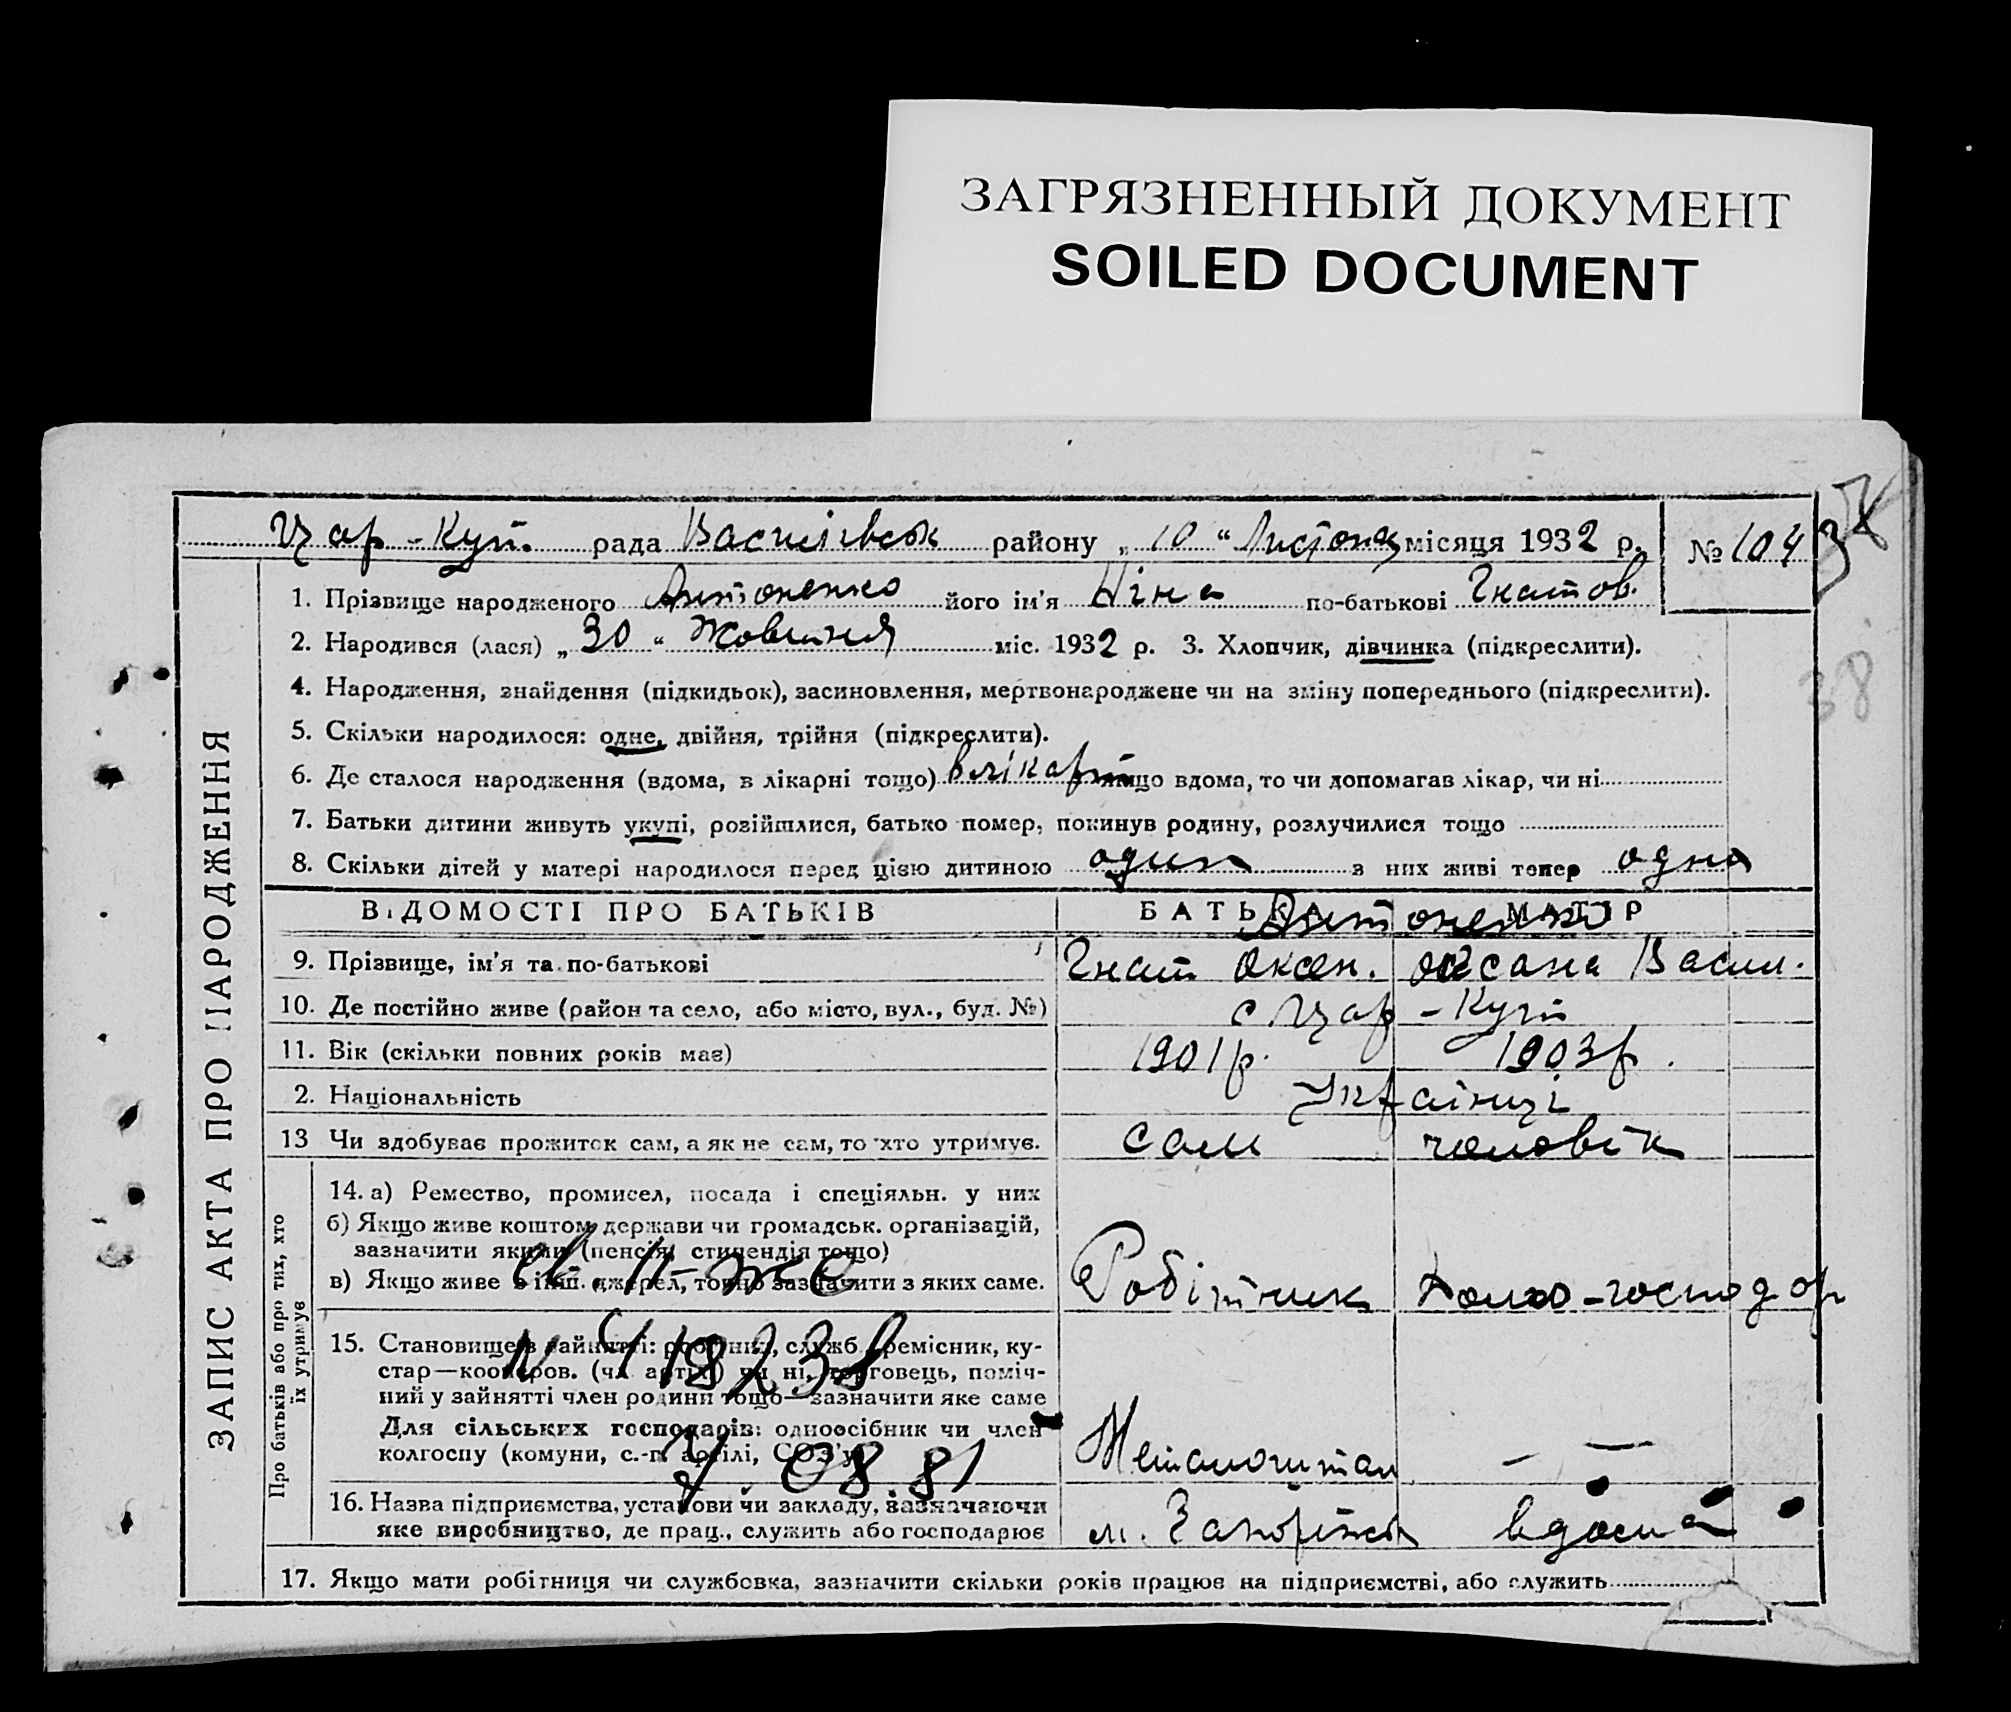 ЗАГРЯЗНЕННЫЙ ДОКУМЕНТ
SOILED DOCUMENT
Цар-Кут. рада Василівськ району „10“ Листопад місяця 1932 р. № 104
ЗАПИС АКТА ПРО НАРОДЖЕННЯ
1. Прізвище народженого Антоненко його ім'я Ніна по-батькові Гнатов.
2. Народився (лася) „30“ Жовтня міс. 1932 р. 3. Хлопчик, дівчинка (підкреслити).
38
4. Народження, знайдення (підкидьок), засиновлення, мертвонароджене чи на зміну попереднього (підкреслити).
5. Скільки народилося: одне, двійня, трійня (підкреслити).
6. Де сталося народження (вдома, в лікарні тощо) в лікарні якщо вдома, то чи допомагав лікар, чи ні
7. Батьки дитини живуть укупі, розійшлися, батько помер, покинув родину, розлучилися тощо
8. Скільки дітей у матері народилося перед цією дитиною один з них живі тепер одна
ВІДОМОСТІ ПРО БАТЬКІВ БАТЬКА МАТІР
Антоненко
9. Прізвище, ім'я та по-батькові Гнат Оксен. Оксана Васил.
10. Де постійно живе (район та село, або місто, вул., буд. №) с Цар-Кут
11. Вік (скільки повних років має) 1901р. 1903р.
2. Національність Українці
13 Чи здобуває прожиток сам, а як не сам, то хто утримує. сам чоловік
Про батьків або про тих, хто їх утримує
14. а) Ремество, промисел, посада і спеціяльн. у них
б) Якщо живе коштом держави чи громадськ. організацій,
зазначити якими (пенсія, стипендія тощо)
в) Якщо живе з інш. джерел, точно зазначити з яких саме. Робітник Домо-господар
15. Становище в зайнятті: робітник, служб., ремісник, ку-
стар—кооперов. (чл. артілі) чи ні, торговець, поміч-
ний у зайнятті член родини тощо—зазначити яке саме
Для сільських господарів: одноосібник чи член
колгоспу (комуни, с.-г. артілі, СОЗ'у) —
08.81
16. Назва підприємства, установи чи закладу, зазначаючи
яке виробництво, де прац., служить або господарює м. Запоріжж вдома
17. Якщо мати робітниця чи службовка, зазначити скільки років працює на підприємстві, або служить